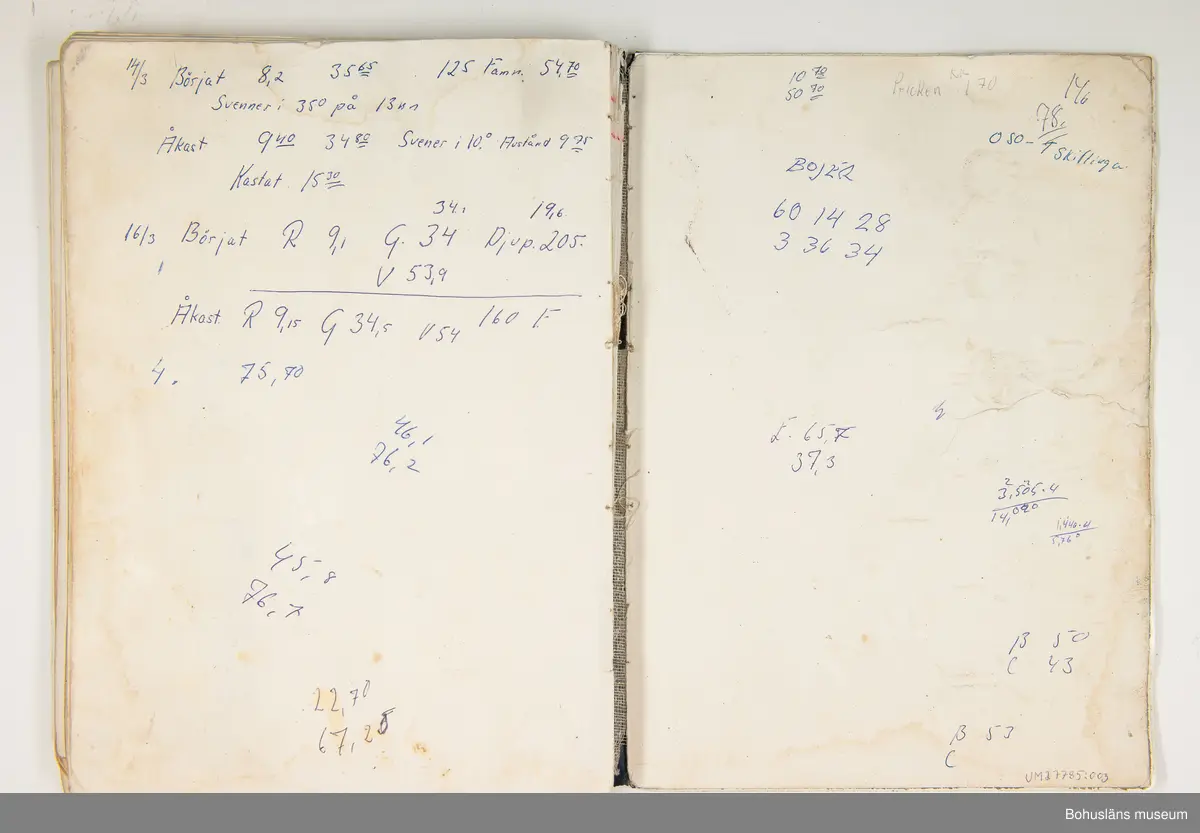 14/3 Börjat 8,2 35 65 125 Famn. 54,70
Svenner i 350 på 13nn
Åkast 9 40 34 80 Svener i 10.0 Avstånd 9 75
Kastat. 15 30
34,1 19,6
16/3 Börjat R 9,1 G. 34 Djup. 205.
V 53,9
Åkast R 9,15 G 34,5 V 54 160 F
4. 75,70
46,1
76,2
45,8
76,7
22,70
67,25
10 70
50 70
Pricken 170
14/6
78,
050-4 Skiftinga
BOJER
60 14 28
3 36 34
E. 65,7
37,3
3,505.4
14,020
1,440.4
5,760
B 50
C 43
B 53
C
UM27785:003
Bohusläns museum